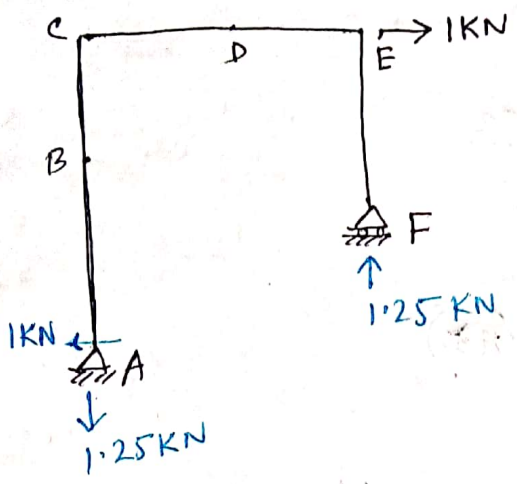 C
D
E
1KN
B
F
1.25 KN
1KN
A
1.25KN